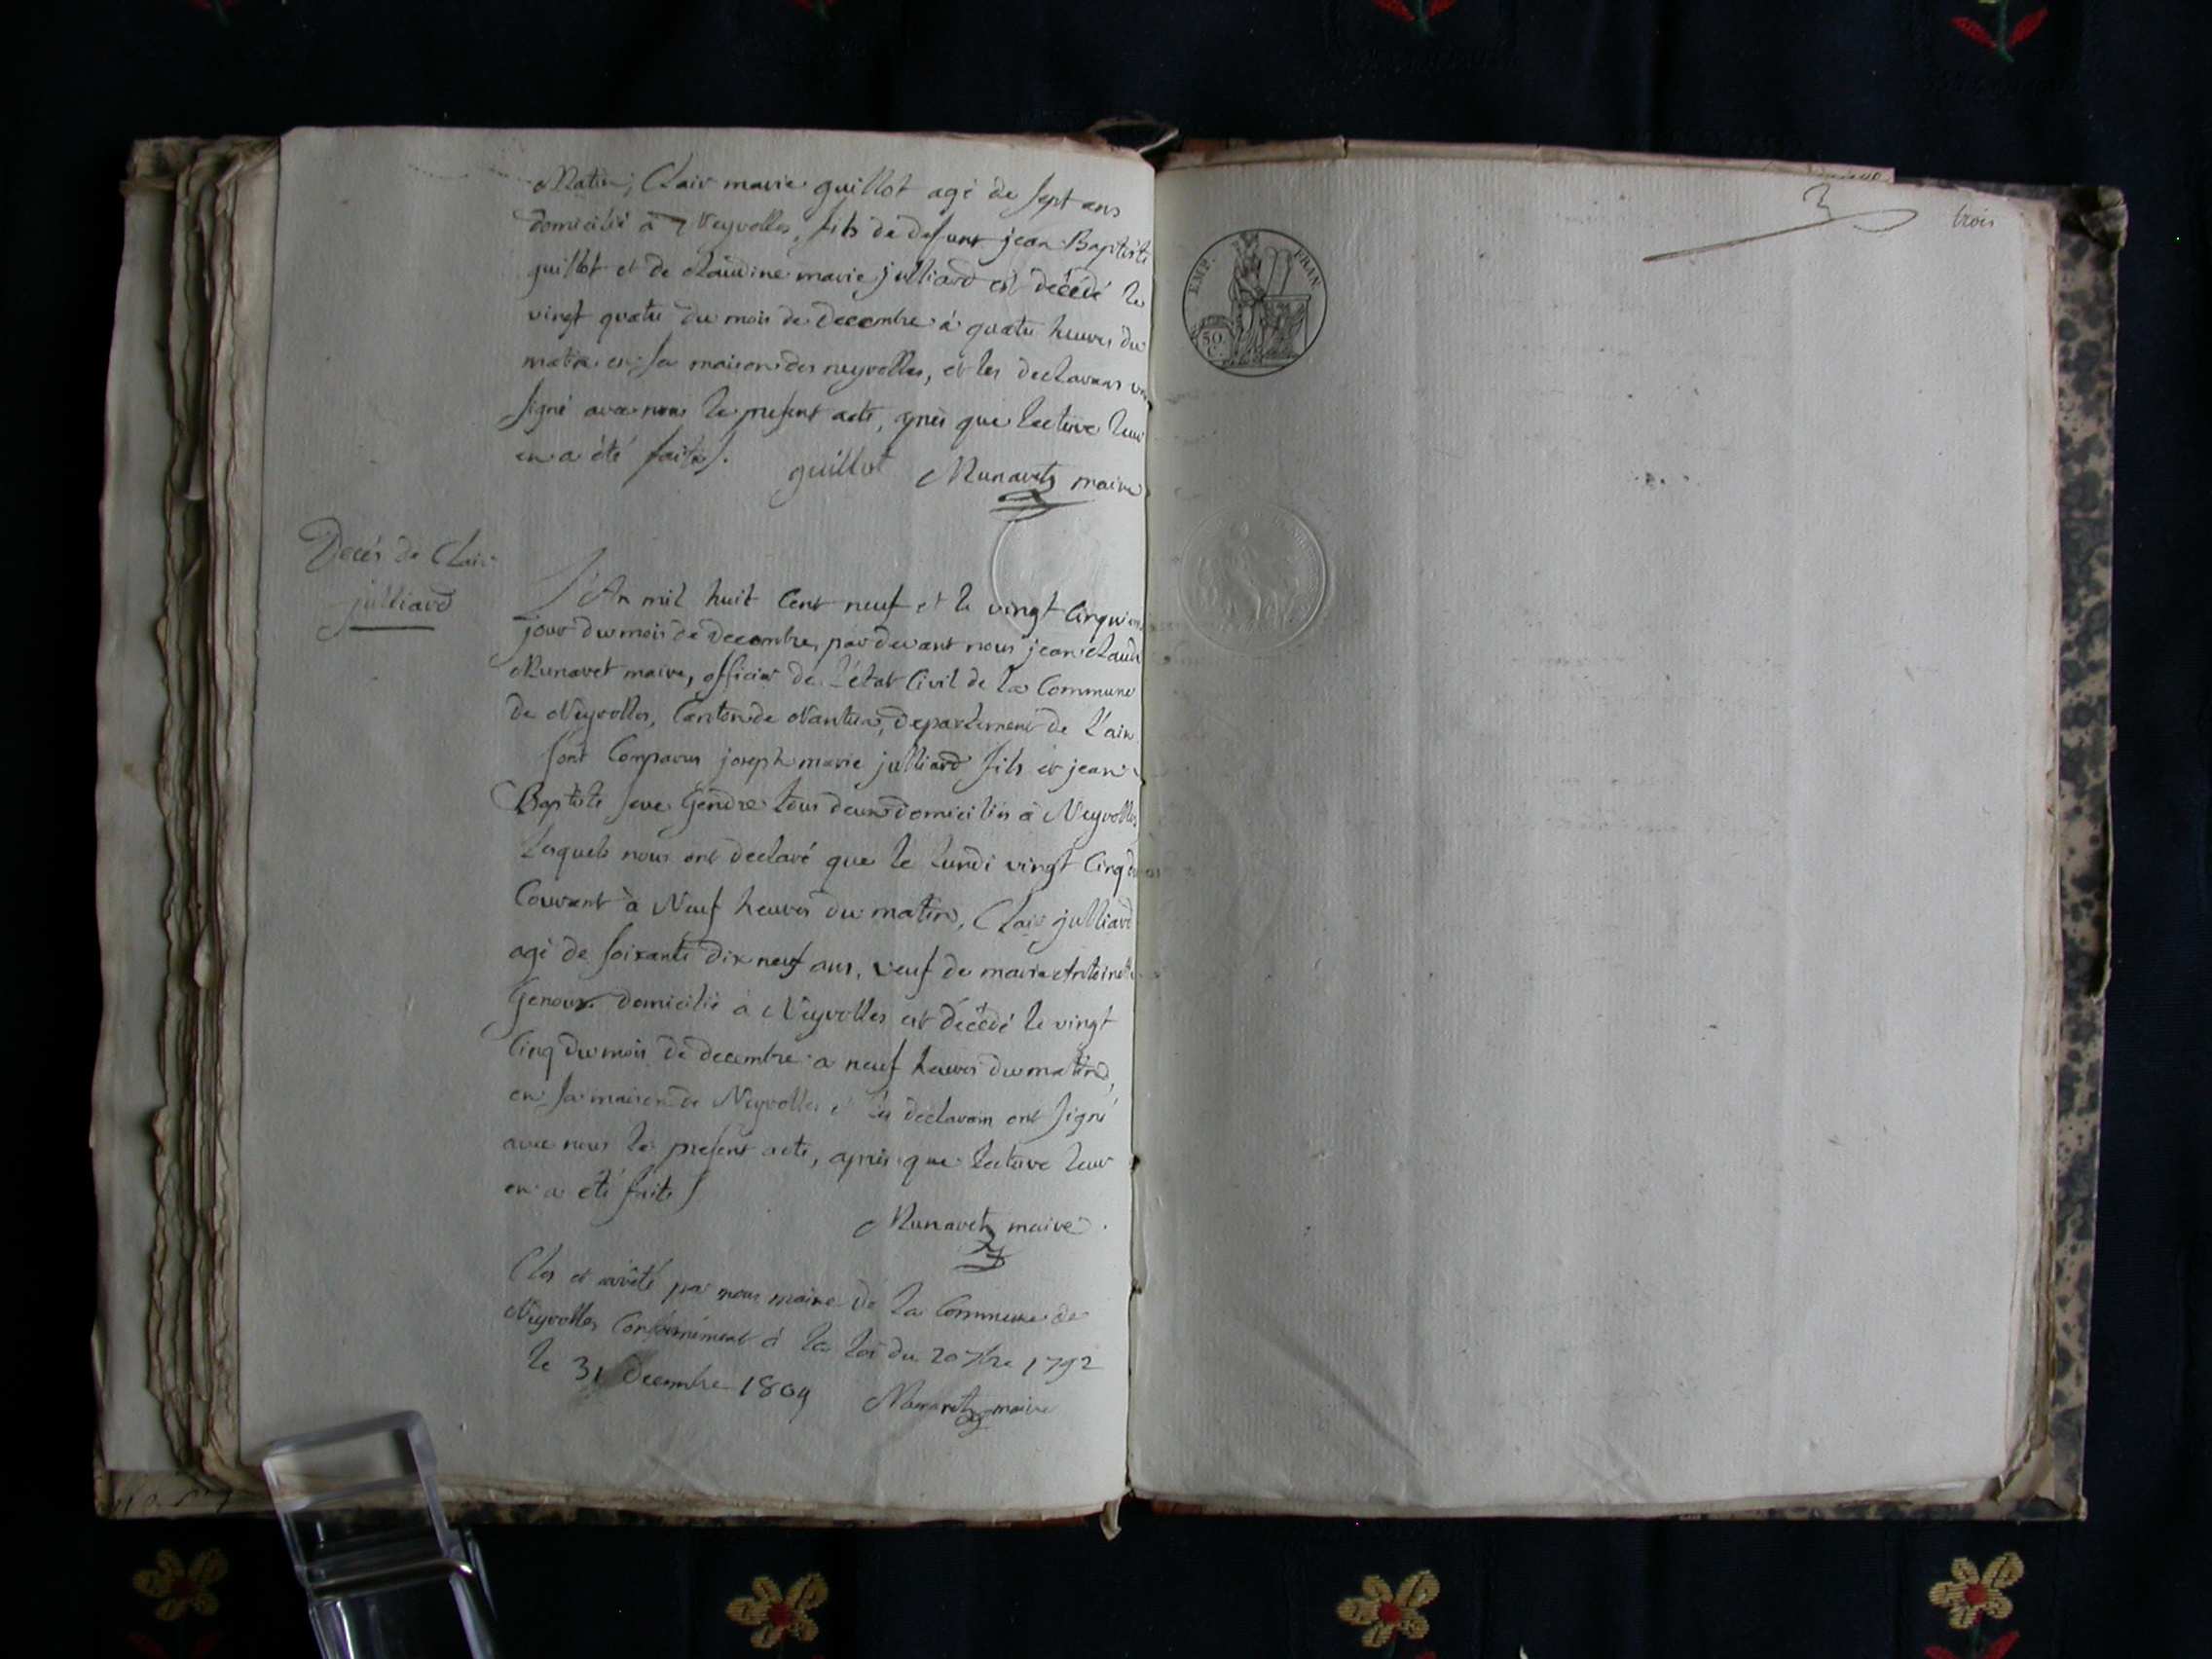 Matin, Clair marie guillot agé de sept ans
domicilié à Neyrolles, fils de defunt jean Baptiste
guillot et de claudine marie julliard est décédé le
vingt quatre du mois de decembre à quatre heures du
matin en sa maison des neyrolles, et les declarans
signé avec nous le present acte, après que lecture leur
en a été faite.
guillot Munaret maire
Decés de Clair
julliard
L'An mil huit Cent neuf et le vingt Cinquieme
jour du mois de decembre, par devant nous jean claude
Munaret maire, officier de l'état Civil de la Commune
de Neyrolles, Canton de Nantua, departement de l'ain
sont Comparus joseph marie julliard fils et jean
Baptiste Gendre tous deux domiciliés à Neyrolles
Lesquels nous ont declaré que le lundi vingt Cinq du
Courant à Neuf heures du matin, Clair julliard
agé de soixante dix neuf ans, veuf de marie Antoinette
Genoux domicilié à Neyrolles est décédé le vingt
Cinq du mois de decembre a neuf heures du matin,
en sa maison de Neyrolles et les declarans ont signé
avec nous le present acte, après que lecture leur
en a été faite
Munaret maire
Clos et arrêté par nous maire de la Commune de
Neyrolles Conformément à la loi du 20 7bre 1792
le 31 decembre 1809 Munaret maire
3 trois
EMP. FRAN
50
C.